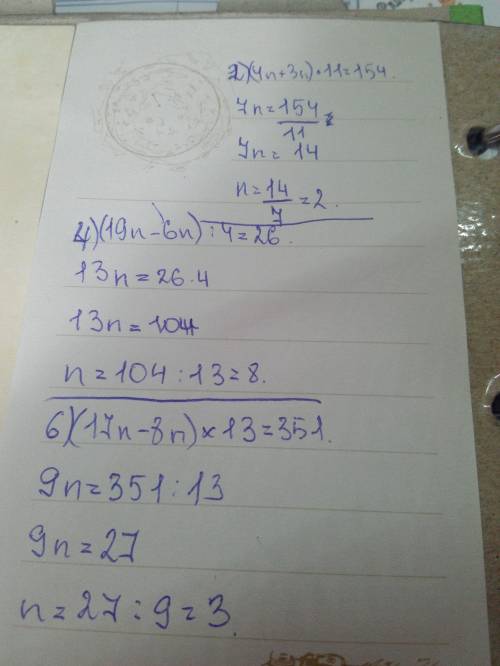 2)(4n+3n)·11=154.
7n=154/11
7n=14
n=14/7=2.
4)(19n-6n):4=26.
13n=26·4
13n=104
n=104:13=8.
6)(17n-8n)×13=351.
9n=351:13
9n=27
n=27:9=3.